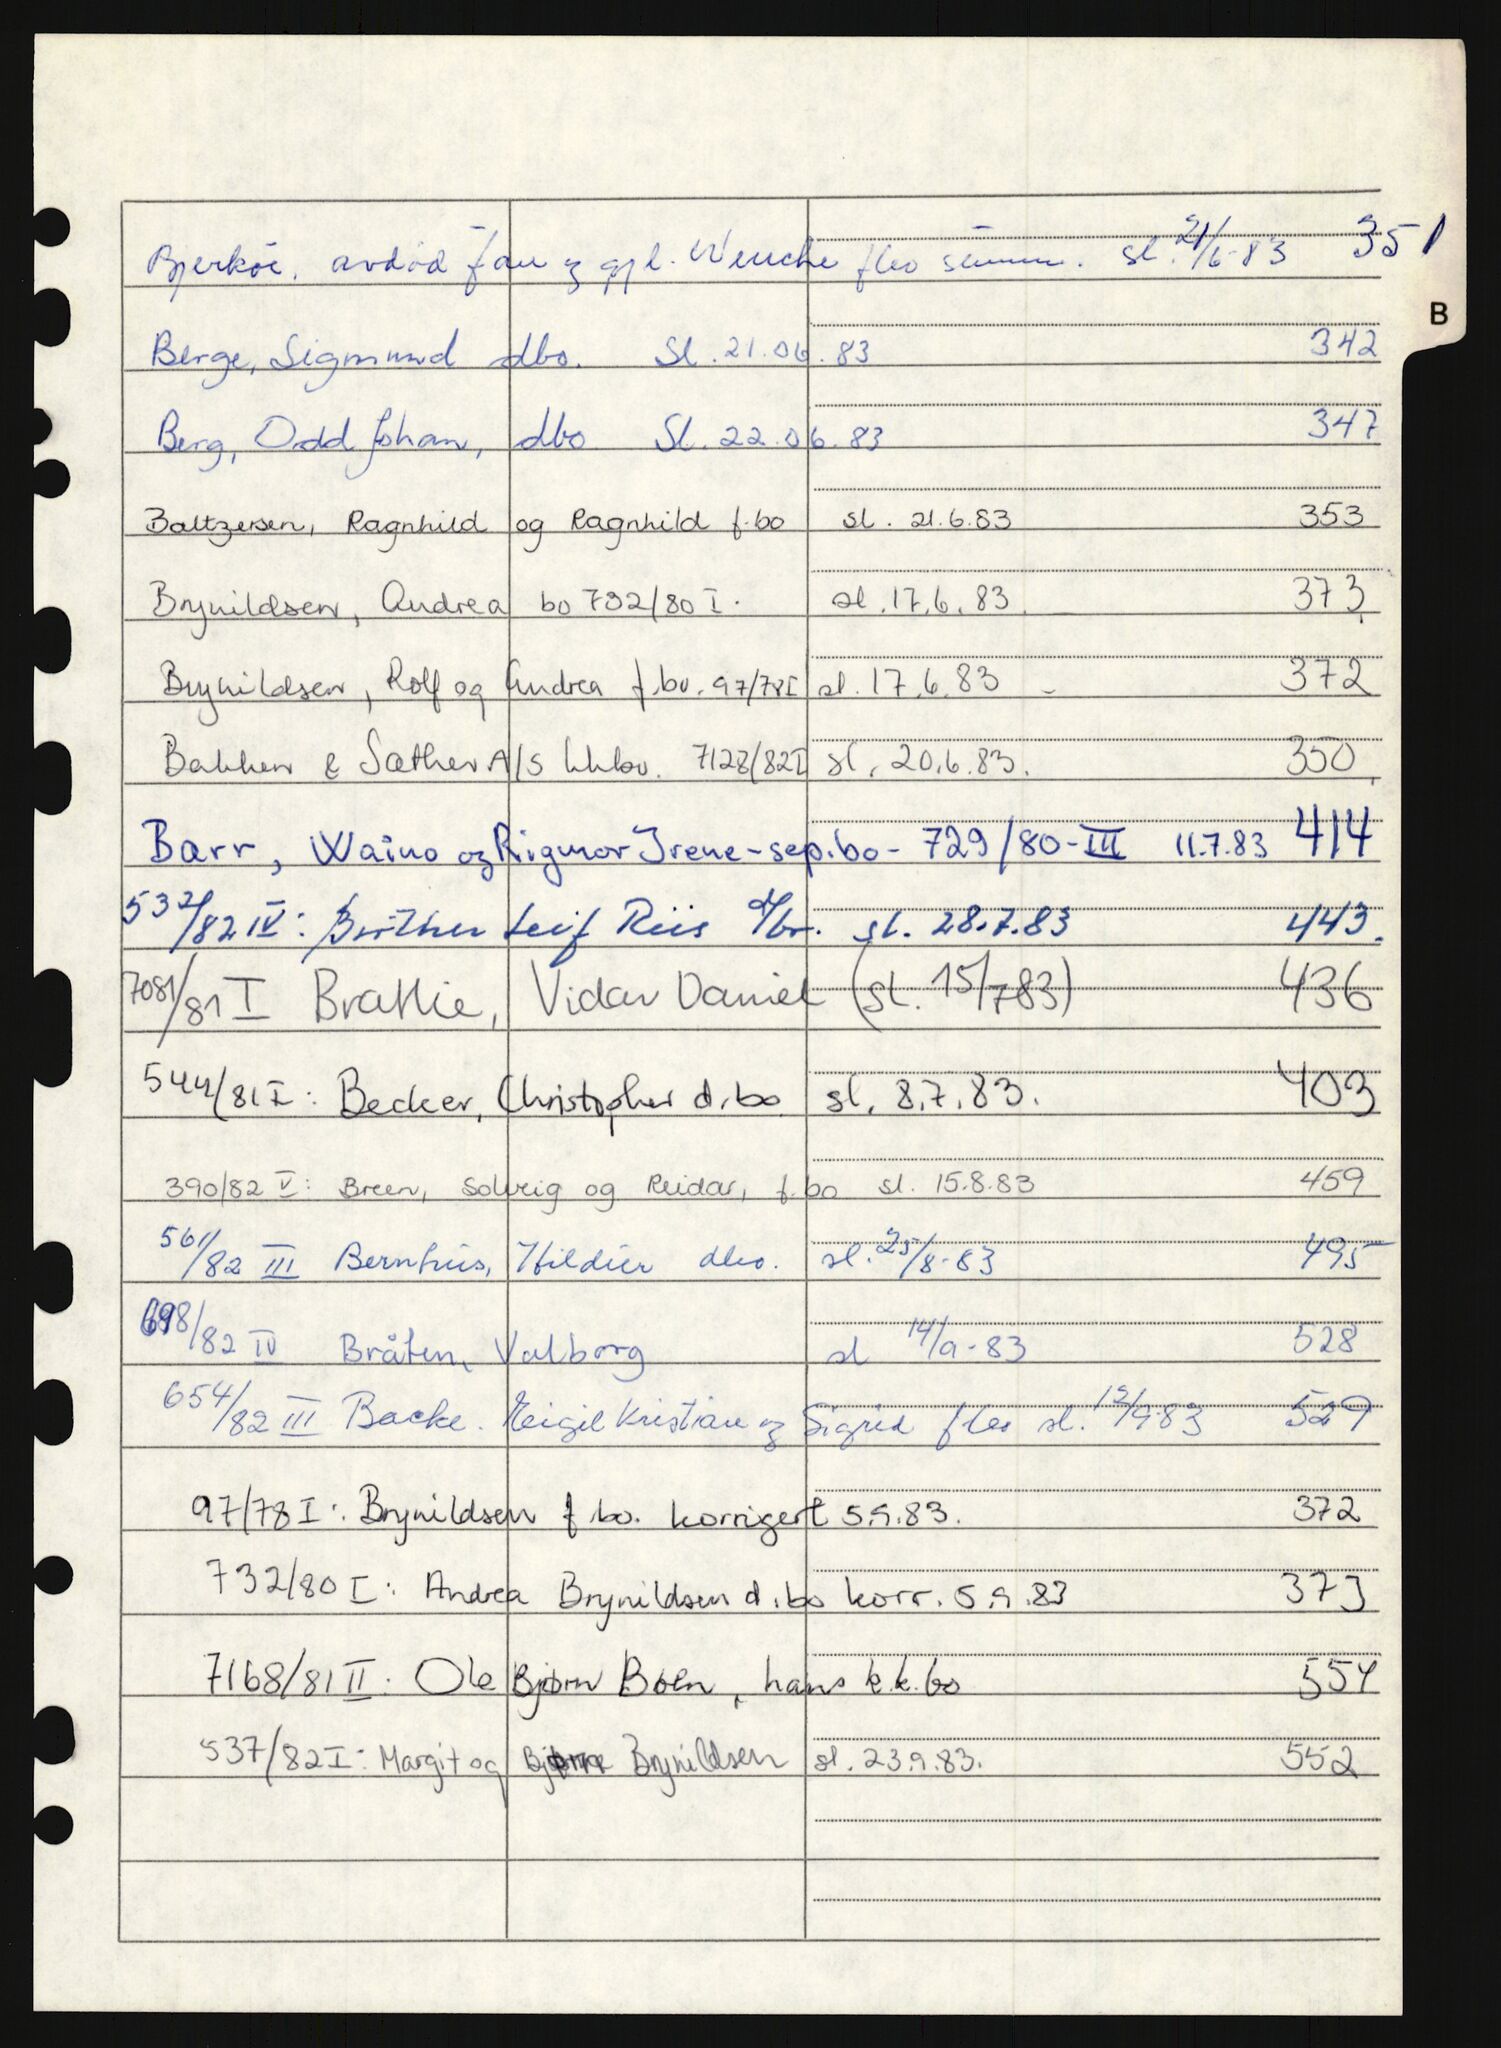 Bjerköe. avdöd Jan og gjl. Wenche fbo summ. sl. 21/6-83 351
B
Berge, Sigmund dbo. Sl. 21.06.83 342
Berg, Odd Johan, dbo Sl. 22.06.83 347
Baltzersen, Ragnhild og Ragnhild f.bo sl. 21.6.83 353
Brynildsen, Andrea bo 732/80 I. sl. 17.6.83 373
Brynildsen, Rolf og Andrea f.bo. 97/78 I sl. 17.6.83 - 372
Bakken & Sæther A/S kkbo. 7128/82 I sl. 20.6.83. 350
Barr, Waino og Rigmor Irene - sep.bo - 729/80 - III 11.7.83 414
532/82 IV: Leif Riis sl. 28.7.83 443.
7081/81 I Brathie, Vidar Daniel (sl. 15/7 83) 436
544/81 I: Becker, Christopher d.bo sl. 8.7.83. 403
390/82 V: Breen, Solveig og Reidar, f.bo sl. 15.8.83 459
561/82 III Bernhus, dbo. sl. 25/8-83 495
698/82 IV Bråten, Valborg sl 14/9-83 528
654/82 III Backe. Eigil Kristian og Sigrid fbo sl. 12/9-83 529
97/78 I: Brynildsen f.bo. korrigert 5.9.83. 372
732/80 I: Andrea Brynildsen d.bo korr. 5.9.83 373
7168/81 II: Ole Bjørn Boen, hans k.k.bo 554
537/82 I: Margit og Bjørne Brynildsen sl. 23.9.83. 552